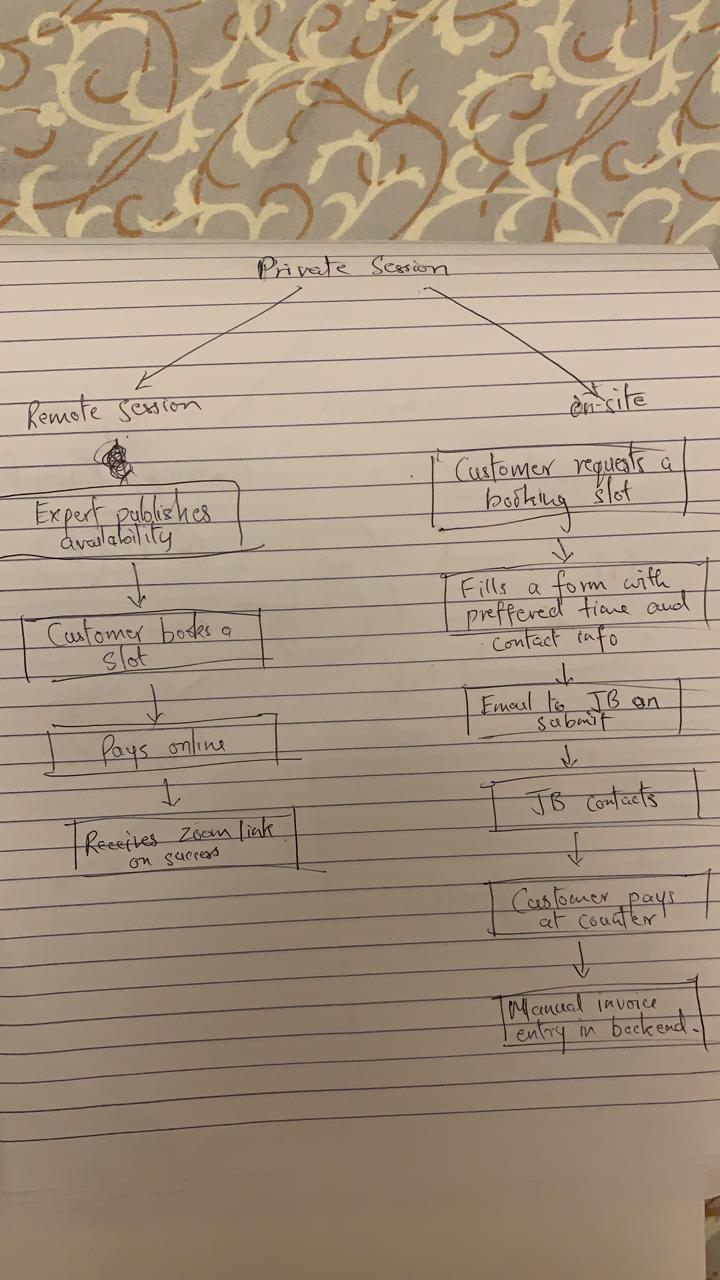 Private Session
Remote Session
Expert publishes
availability
Customer books a
slot
Pays online
Receives zoom link
on success
On-site
Customer requests a
booking slot
Fills a form with
preffered time and
contact info
Email to JB on
submit
JB contacts
Customer pays
at counter
Manual invoice
entry in backend.